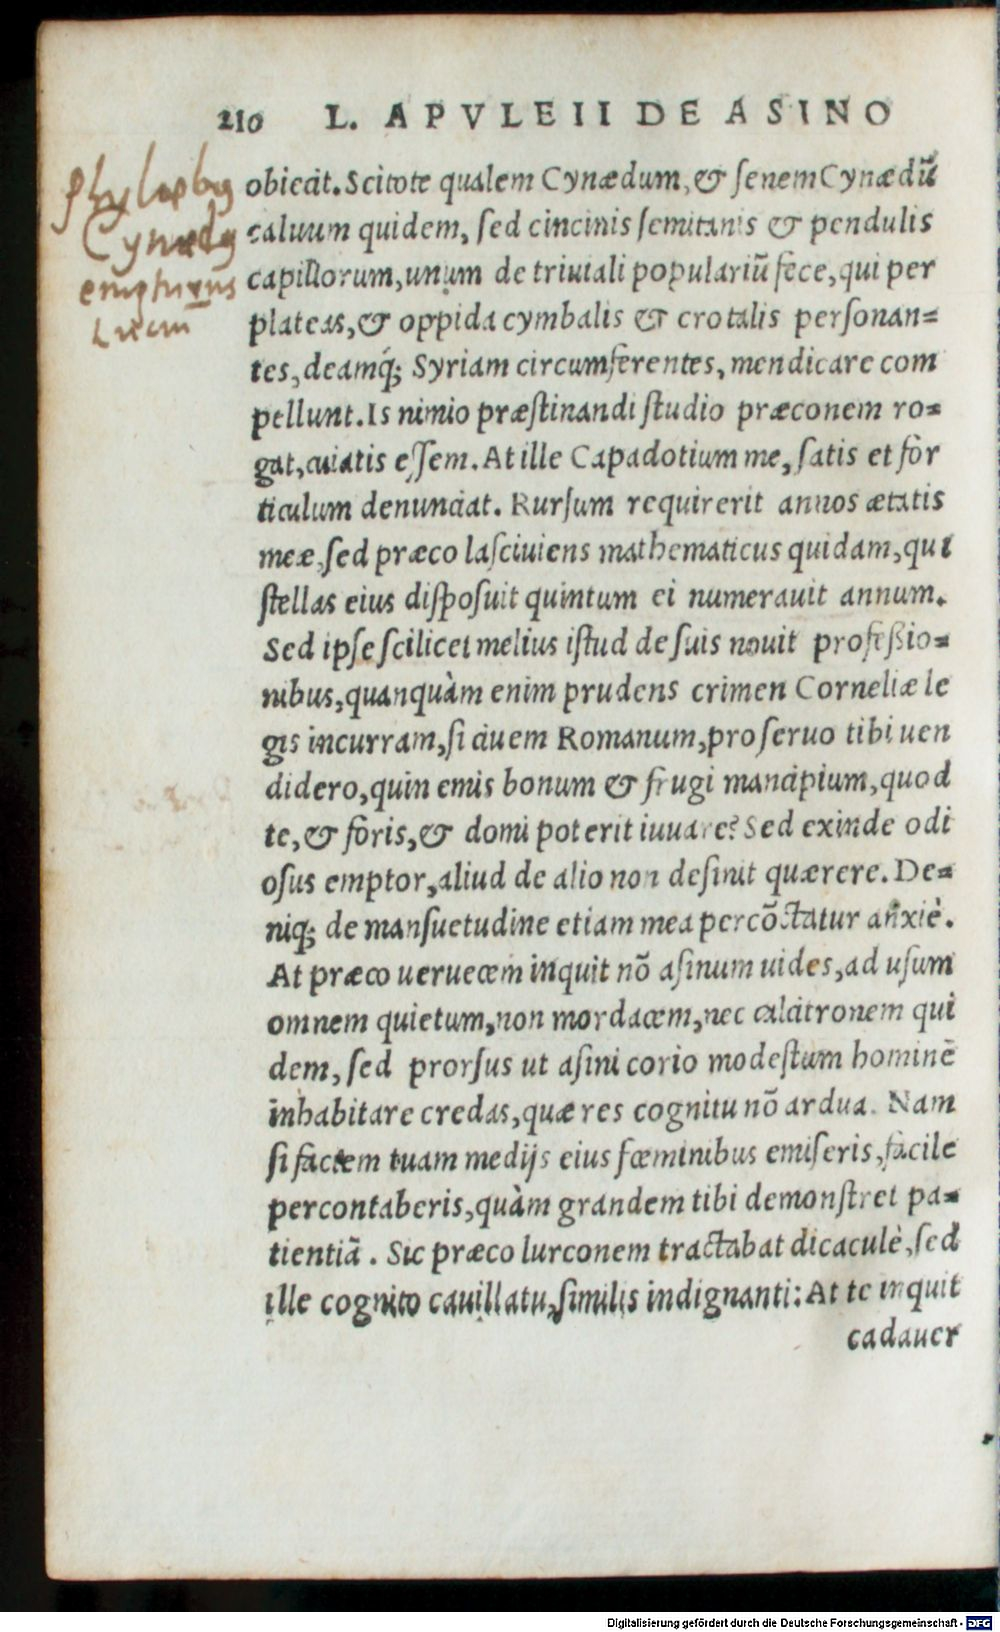 210 L. APVLEII DE ASINO
obiecit. Scitote qualem Cynædum, & ſenem Cynædũ
caluum quidem, ſed cincinis ſemitanis & pendulis
capillorum, unum de triuiali populariũ fece, qui per
plateas, & oppida cymbalis & crotalis perſonan=
tes, deamq́; Syriam circumferentes, mendicare com
pellunt. Is nimio præſtinandi ſtudio præconem ro=
gat, cuiatis eſſem. At ille Capadotium me, ſatis et for
ticulum denunciat. Rurſum requirerit annos ætatis
meæ, ſed præco laſciuiens mathematicus quidam, qui
ſtellas eius diſpoſuit quintum ei numerauit annum.
Sed ipſe ſcilicet melius iſtud de ſuis nouit profeßio=
nibus, quanquàm enim prudens crimen Corneliæ le
gis incurram, ſi ciuem Romanum, pro ſeruo tibi uen
didero, quin emis bonum & frugi mancipium, quod
te, & foris, & domi poterit iuuare? Sed exinde odi
oſus emptor, aliud de alio non deſinit quærere. De=
niq; de manſuetudine etiam mea percõctatur anxiè.
At præco ueruecem inquit nõ aſinum uides, ad uſum
omnem quietum, non mordacem, nec calcitronem qui
dem, ſed prorſus ut aſini corio modeſtum hominẽ
inhabitare credas, quæ res cognitu nõ ardua. Nam
ſi faciem tuam medijs eius fœminibus emiſeris, facile
percontaberis, quàm grandem tibi demonſtret pa=
tientiã. Sic præco lurconem tractabat dicaculè, ſed
ille cognito cauillatu, ſimilis indignanti: At te inquit
cadauer
Phylebus
Cynædus
Lucium
Digitalisierung gefördert durch die Deutsche Forschungsgemeinschaft - DFG